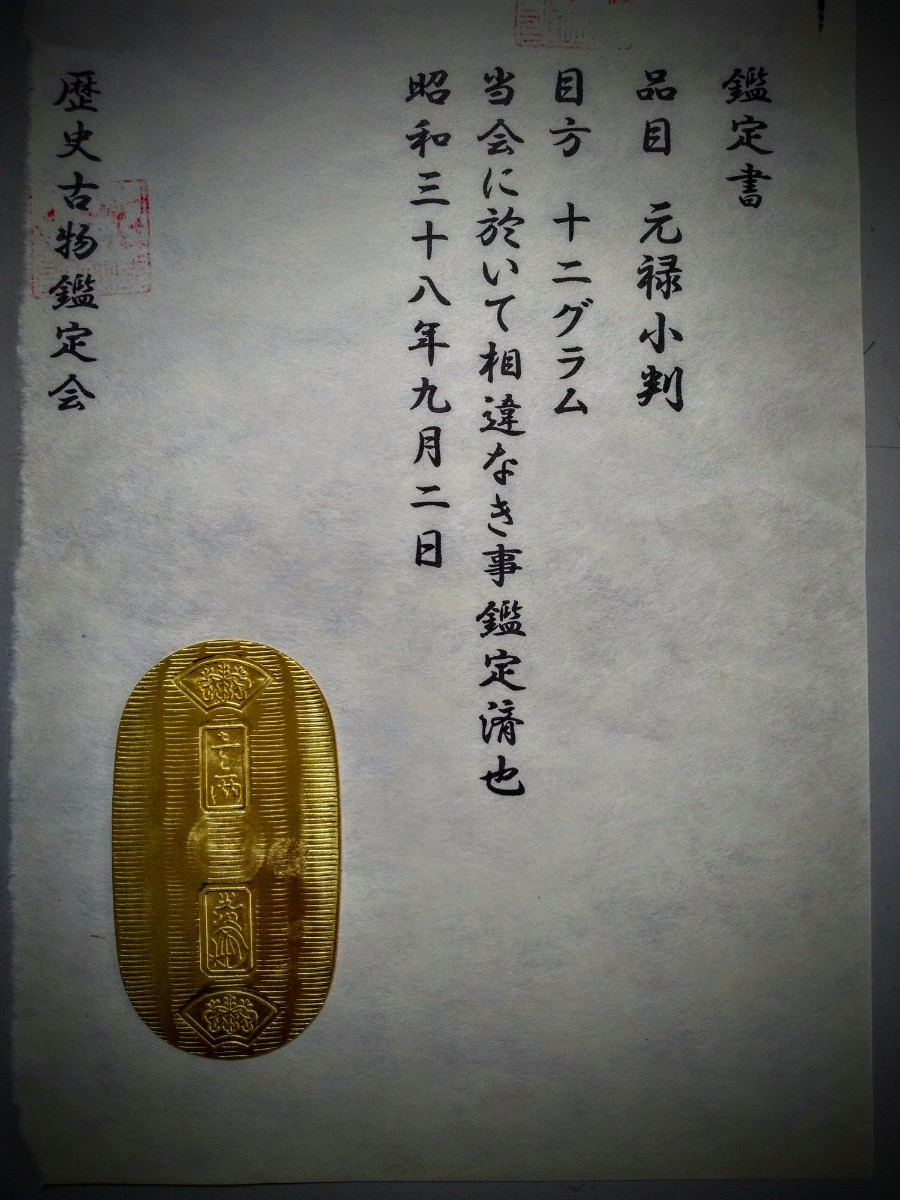 鑑定書
品目 元禄小判
目方 十二グラム
当会に於いて相違なき事鑑定済也
昭和三十八年九月二日
歴史古物鑑定会
壹両